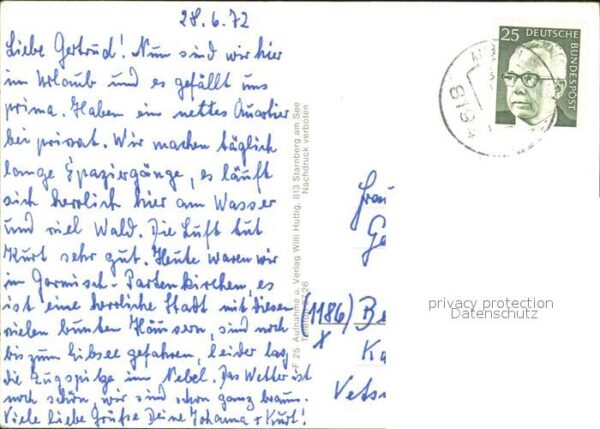 28.6.72
Liebe Gertrud! Nun sind wir hier
im Urlaub und es gefällt uns
prima. Haben ein nettes Quartier
bei privat. Wir machen täglich
lange Spaziergänge, es läuft
sich herrlich hier am Wasser
und viel Wald. Die Luft tut
Kurt sehr gut. Heute waren wir
in Garmisch-Partenkirchen, es
ist eine herrliche Stadt mit diesen
vielen bunten Häusern, sind noch
bis zum Eibsee gefahren, leider lag
die Zugspitze im Nebel. Das Wetter ist
noch schön, wir sind schon ganz braun.
Viele liebe Grüße Deine Johanna + Kurt!
F 25 Aufnahme u. Verlag Willi Huttig, 813 Starnberg am See
Nachdruck verboten
25 DEUTSCHE
BUNDESPOST
Frau
Ge
(1186) Be
X
Ka
Vets
privacy protection
Datenschutz